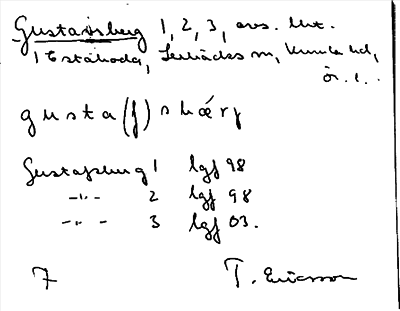 Gustavsberg 1, 2, 3, avs. lht.
i Estaboda, m, Kumla hd,
ör. l.
gusta(f)sbærj
Gustafsberg 1 lgf 98
-"- 2 lgf 98
-"- 3 lgf 03.
7 T. Ericsson